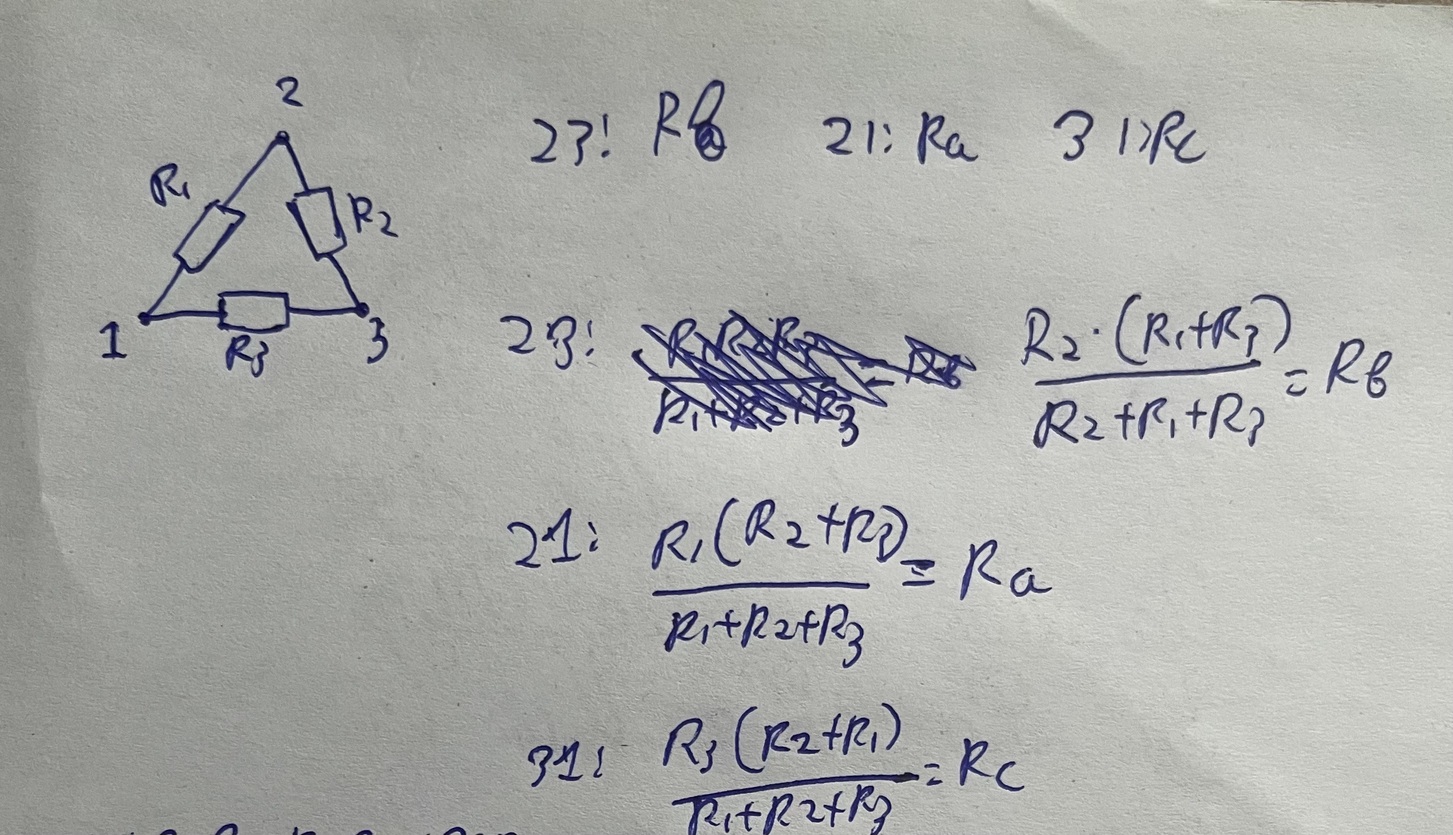 2
R₁
R₂
1
R₃
3
23: Rb 21: Ra 31: Rc
23: R₂·(R₁+R₃) / R₂+R₁+R₃ = Rb
21: R₁(R₂+R₃) / R₁+R₂+R₃ = Ra
31: R₃(R₂+R₁) / R₁+R₂+R₃ = Rc